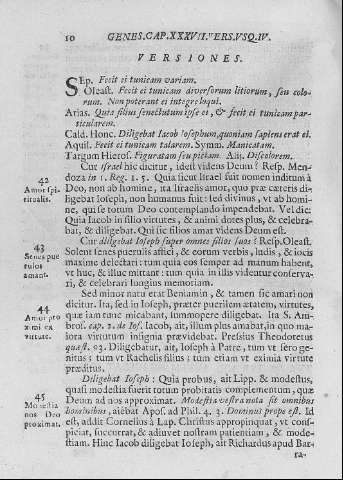 10 GENES. CAP. XXXVII. VERS. VSQ. IV.
VERSIONES.
SEp. Fecit ei tunicam variam.
Oleast. Fecit ei tunicam diversorum litiorum, seu colo-
rum. Non poterant ei integre loqui.
Arias. Quia filius senectutum ipse ei, & fecit ei tunicam par-
ticularem.
Cald. Honc. Diligebat Iacob Iosephum, quoniam sapiens erat ei.
Aquil. Fecit ei tunicam talarem. Symm. Manicatam.
Targum Hieros. Figuratam seu pictam. Alij. Discolorem.
Cur Israel hic dicitur, idest videns Deum? Resp. Men-
doza in 1. Reg. 1. 5. Quia sicut Israel suit nomen inditum à
42
Amor spi-
ritualis.
Deo, non ab homine, ita Israelis amor, quo præ cæteris di-
ligebat Ioseph, non humanus fuit: sed divinus, vt ab homi-
ne, qui se totum Deo contemplando impendebat. Vel dic:
Quia Iacob in filio virtutes, & animi dotes plus, & celebra-
bat, & diligebat. Qui sic filios amat videns Deum est.
Cur diligebat Ioseph super omnes filios suos? Resp. Oleast.
43
Senes pue
rulos
amant.
Solent senes puerulis affici, & eorum verbis, ludis, & iocis
maxime delectari: tum quia eos semper ad manum habent,
vt huc, & illuc mittant: tum quia in illis videntur conserva-
ri, & celebrari longius memoriam.
Sed minor natu erat Beniamin, & tamen sic amari non
dicitur. Ita, sed in Ioseph, præter puerilem ætatem, virtutes,
44
Amor pro
ximi ex
virtute.
quæ iam tunc micabant, summopere diligebat. Ita S. Am-
bros. cap. 2. de Ios. Iacob, ait, illum plus amabat, in quo ma-
iora virtutum insignia prævidebat. Persius Theodoretus
quæst. 93. Diligebatur, ait, Ioseph à Patre, tum vt sero ge-
nitus: tum vt Rachelis filius: tum etiam vt eximia virtute
præditus.
Diligebat Ioseph: Quia probus, ait Lipp. & modestus,
quasi modestia fuerit totum probitatis complementum, quæ
45
Modestia
nos Deo
proximat.
Deum ad nos approximat. Modestia vestra nota sit omnibus
hominibus, aiebat Apos. ad Phil. 4. 5. Dominus prope est. Id
est, addit Cornelius à Lap. Christus appropinquat, vt con-
spiciat, succurrat, & adiuvet nostram patientiam, & mode-
stiam. Hinc Iacob diligebat Ioseph, ait Richardus apud Bar-
ra-